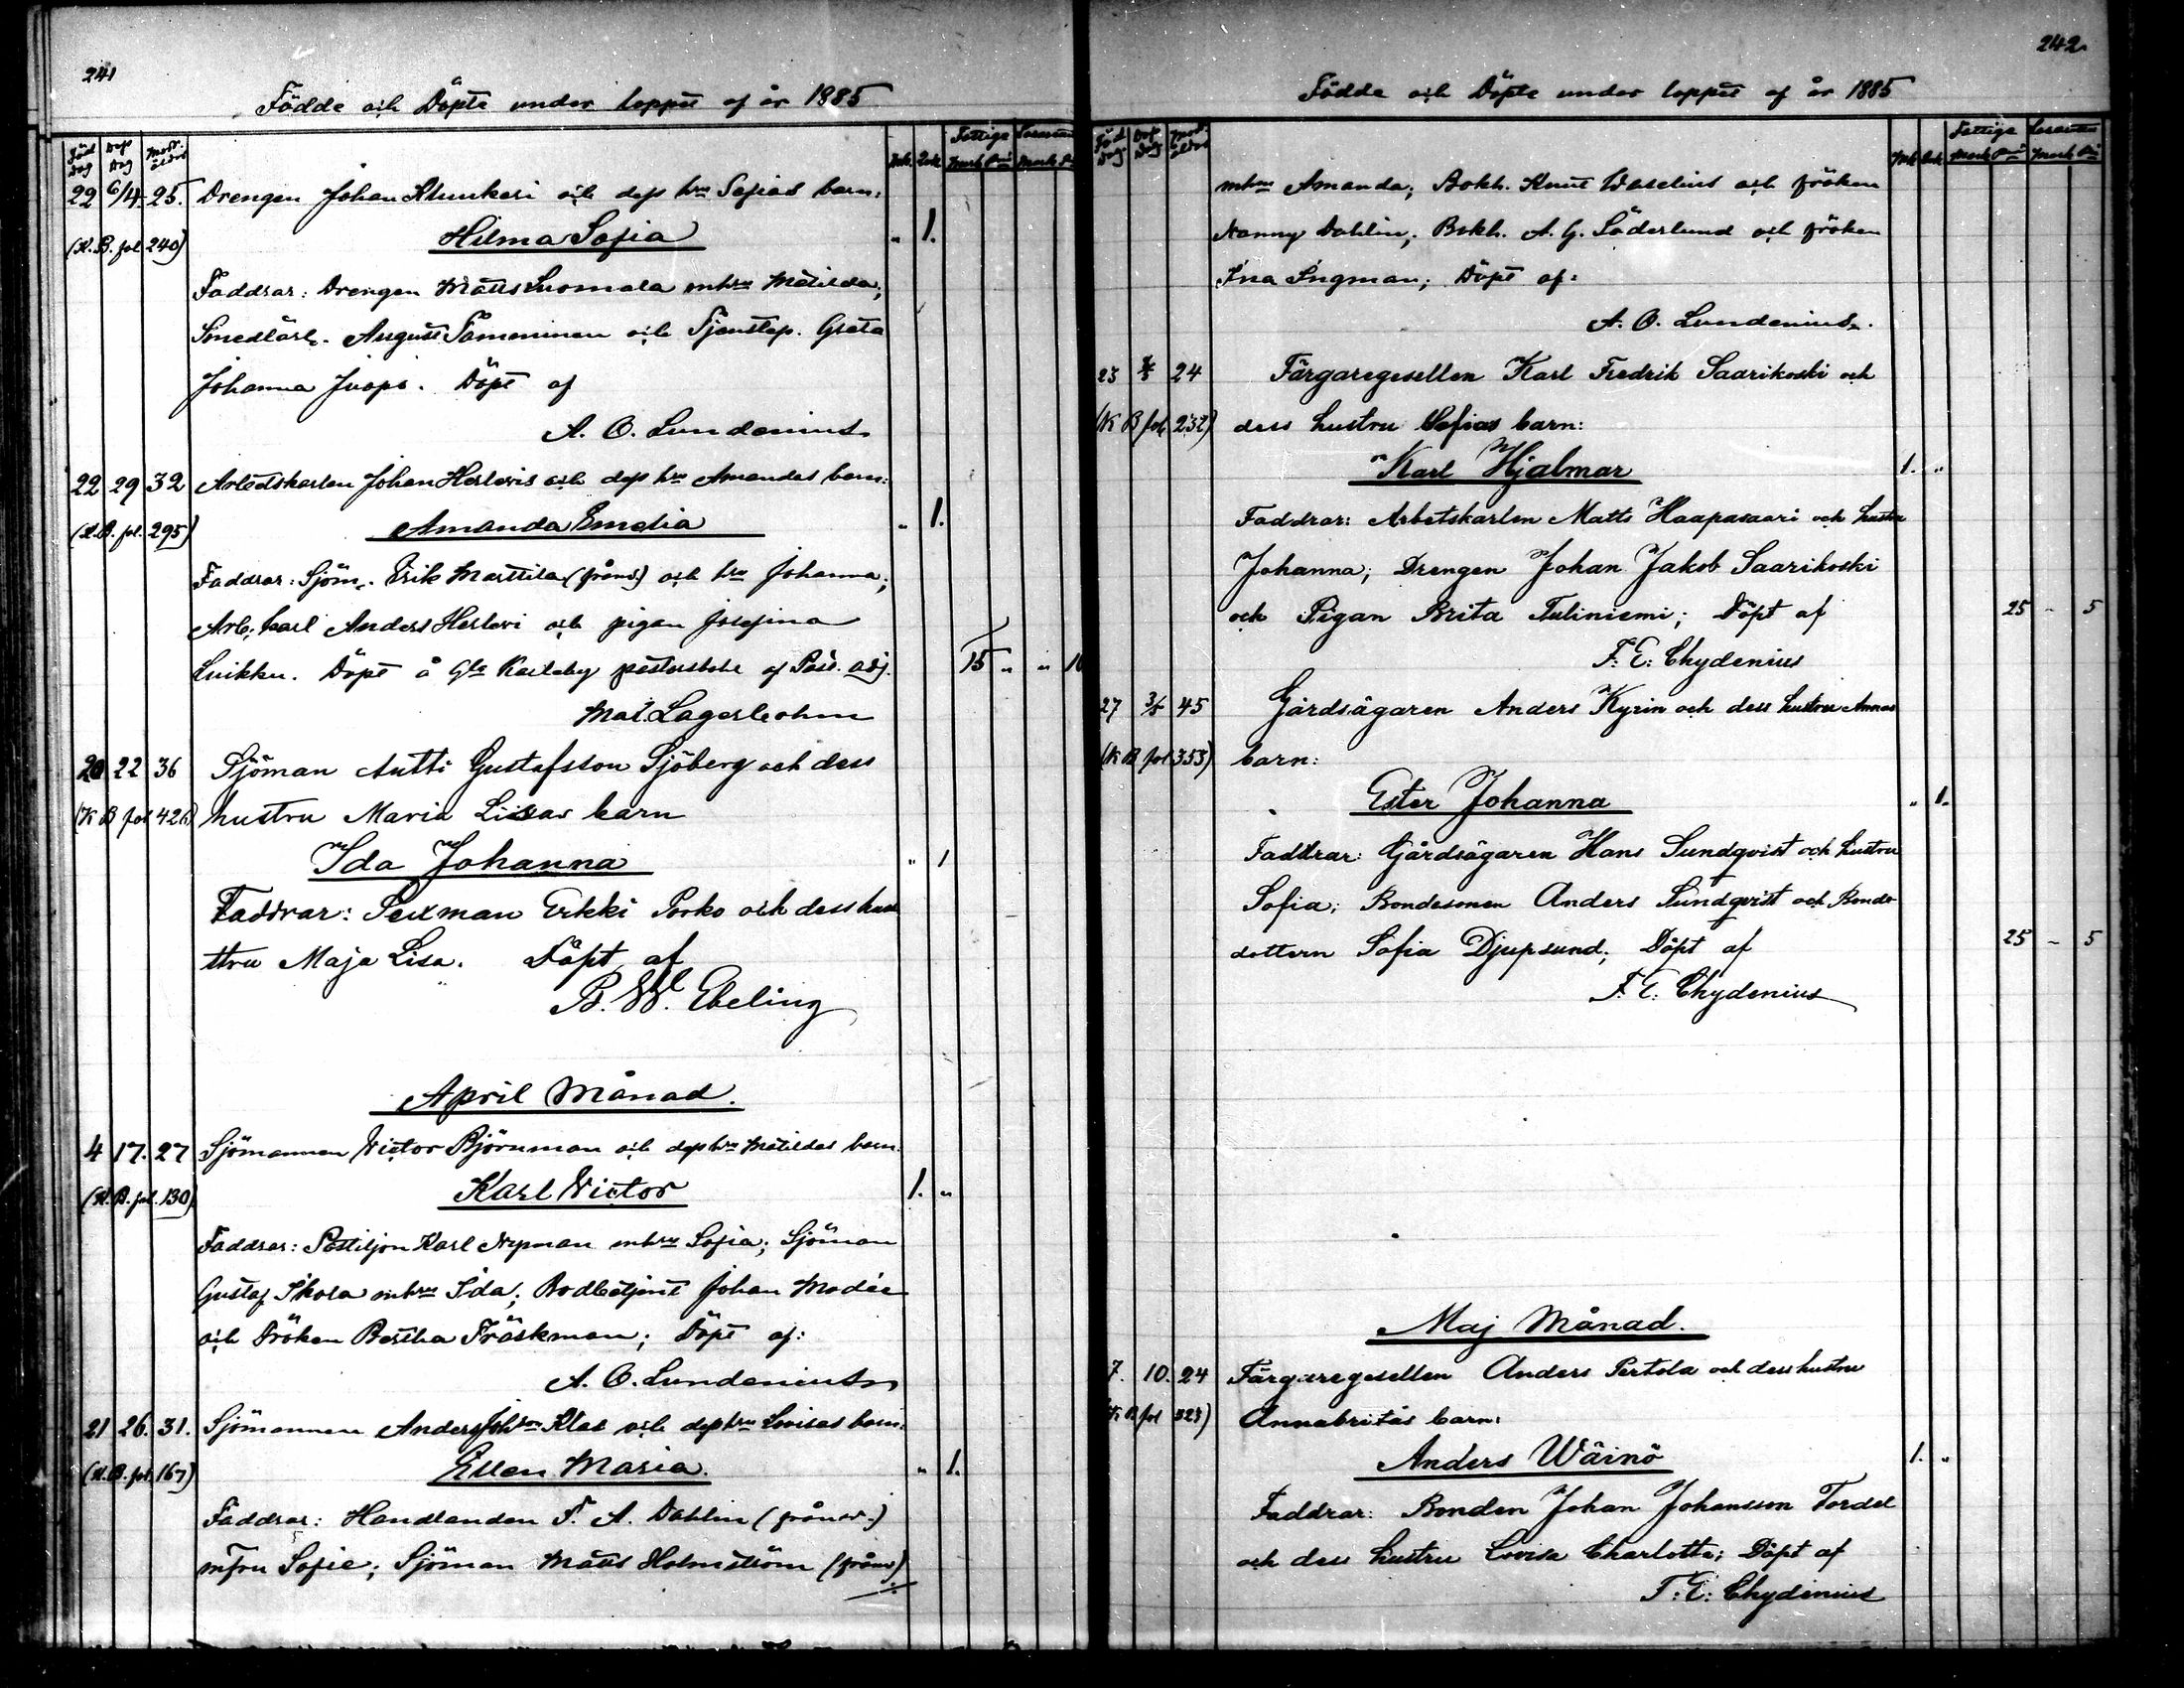 241
Födde och Döpte under loppet af år 1885
Född dag Dop dag Mod. ålder
Fattige
22 6/4 25. Drengen Johan Klunkari och dess hru Sofias barn:
(K.B. fol 240) Hilma Sofia " 1.
Faddrar: Drengen Matts Luomala mhru Matilda;
Smedlärl. August Tamminen och Tjenstep. Greta
Johanna Juopo. Döpt af
A. O. Lundenius
22 29 32 Arbetskarlen Johan Herlevis och dess hru Amandas barn:
(K.B. fol. 295) Amanda Emelia " 1.
Faddrar: Sjöm. Erik Marttila (frånv.) och hru Johanna;
Arb. karl Anders Herlevi och pigan Josefina
Luikku. Döpt å Gla Karleby pastorsbole af Past. adj. 15 " " 10
Mat. Lagerbohm
20 22 36 Sjöman Antti Gustafsson Sjöberg och dess
(K B fol 426) hustru Maria Lisas barn
Ida Johanna " 1
Faddrar: Sexman Erkki Porko och dess hus
ttru Maja Lisa. Döpt af
B. W. Ebeling
April Månad.
4 17. 27 Sjömannen Victor Björnman och dess hru Matildas barn.
(K.B. fol. 130) Karl Victor 1. "
Faddrar: Postiljon Karl Nyman mhru Sofia; Sjöman
Gustaf Skola mhru Ida; Bodbetjent Johan Modée
och Fröken Bertha Träskman; Döpt af:
A. O. Lundenius
21 26. 31. Sjömannen Anders Johson Klas och dess hru Lovisas barn.
(K.B. fol. 167) Ellen Maria. " 1.
Faddrar: Handlanden F. A. Dahlin (frånv.)
mfru Sofie; Sjöman Matts Holmström (frånv)
242.
Födde och Döpte under loppet af år 1885
Född Dag. Dop Dag Mod. ålder
Fattige
mhru Amanda; Bokh. Knut Waselius och fröken
Nanny Dahlin; Bokh. A. G. Söderlund och fröken
Ina Ingman; Döpt af:
A. O. Lundenius.
23 24 Färgaregesellen Karl Fredrik Saarikoski och
(K B fol 232) dess hustru Sofias barn:
Karl Hjalmar 1. "
Faddrar: Arbetskarlen Matts Haapasaari och hustru
Johanna; Drengen Johan Jakob Saarikoski
och Pigan Brita Tuliniemi; Döpt af 25 - 5
F. E. Chydenius
27 3/5 45 Gårdsägaren Anders Kyrin och dess hustru Annas
(K B fol 353) barn:
Ester Johanna " 1.
Faddrar: Gårdsägaren Hans Sundqvist och hustru
Sofia; Bondesonen Anders Sundqvist och Bonde-
dottern Sofia Djupsund; Döpt af 25 - 5
F. E. Chydenius
Maj Månad.
7. 10. 24 Färgaregesellen Anders Pertola och dess hustru
(K B fol 323) Annabritas barn:
Anders Wäinö 1. "
Faddrar: Bonden Johan Johansson Tordel
och dess hustru Lovisa Charlotta; Döpt af
F. E. Chydenius